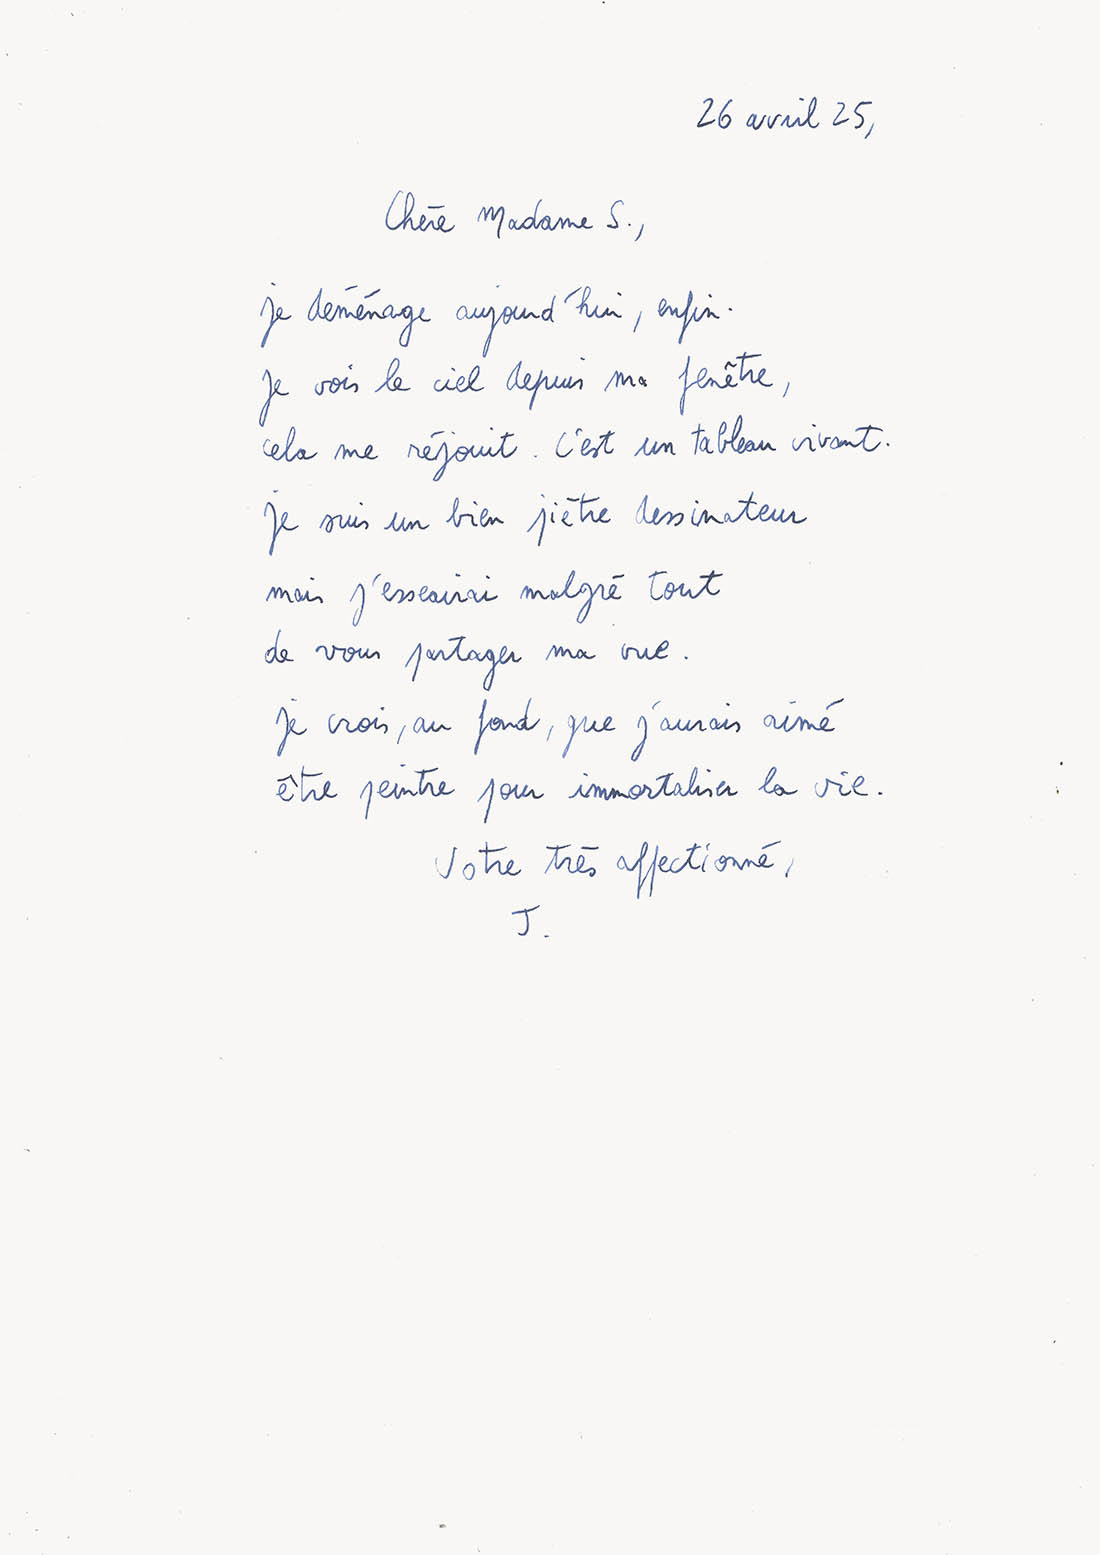 26 avril 25,
Chère Madame S.,
je déménage aujourd'hui, enfin.
Je vois le ciel depuis ma fenêtre,
cela me réjouit. C'est un tableau vivant.
Je suis un bien piètre dessinateur
mais j'esseairai malgré tout
de vous partager ma vue.
Je crois, au fond, que j'aurais aimé
être peintre pour immortaliser la vie.
Votre très affectionné,
J.